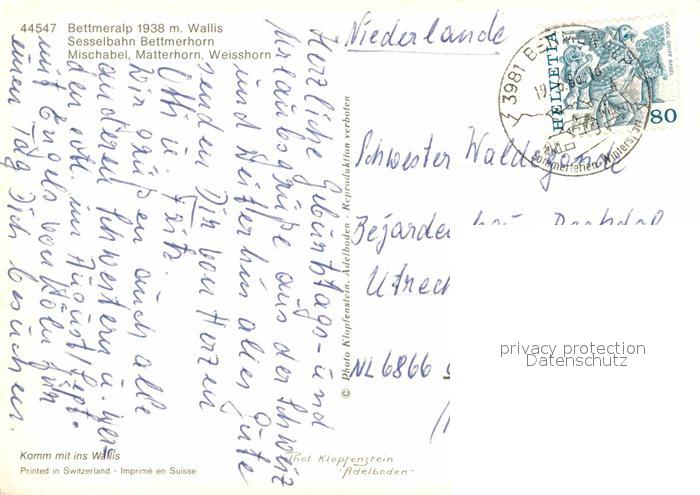 44547 Bettmeralp 1938 m. Wallis
Sesselbahn Bettmerhorn
Mischabel, Matterhorn, Weisshorn
Herzliche Geburtstags- und
Urlaubsgrüße aus der Schweiz
und weiterhin alles Gute
senden Dir von Herzen
Otti u. Fritz.
Wir grüßen auch alle
anderen Schwestern u. wer-
den evtl. im August/Sept.
mit Engels von Köln für
einen Tag Dich besuchen.
Komm mit ins Wallis
Printed in Switzerland - Imprimé en Suisse
© Photo Klopfenstein, Adelboden - Reproduktion verboten
Phot. Klopfenstein
-Adelboden-
Niederlande
3981 BETTMERALP
HELVETIA
80
VOGEL GRYFF BASEL
Schwester
Bejarde
Utrec
NL 6866
privacy protection
Datenschutz